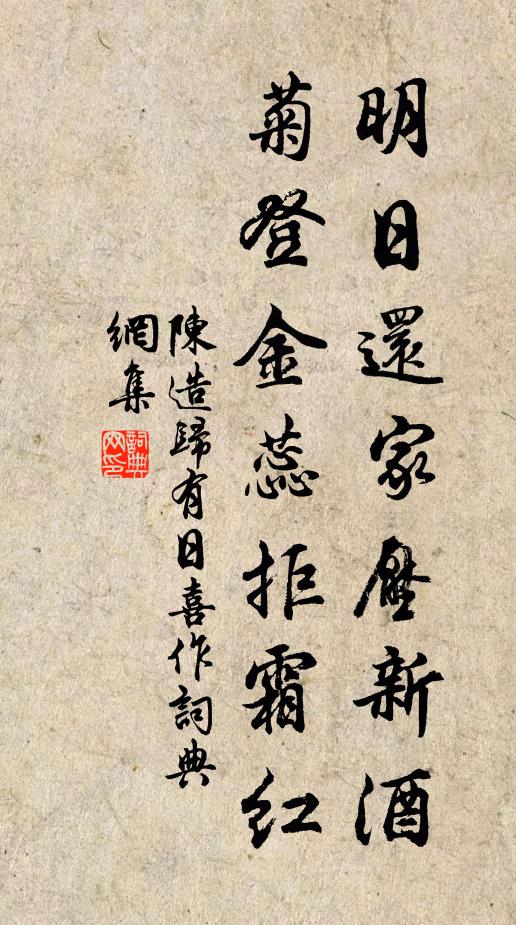 明日還家壓新酒
菊登金蕊拒霜紅
陳造歸有日喜作詞典
網集
詞典
网印